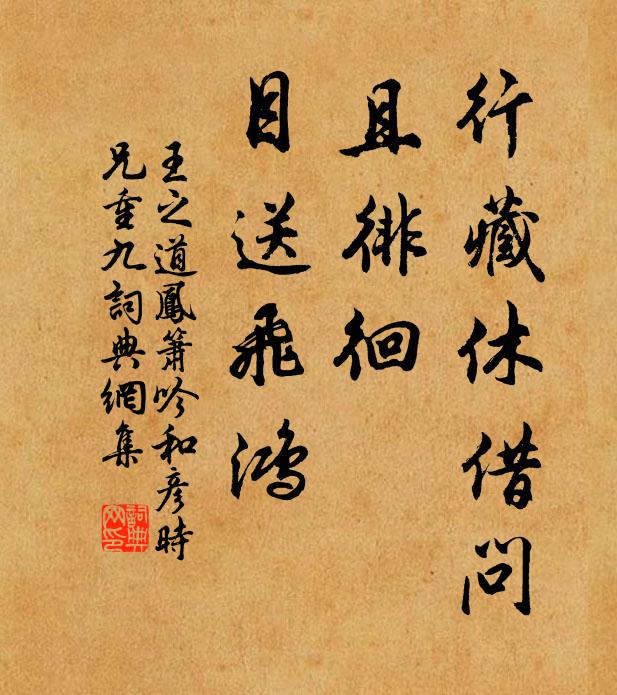 行藏休借問
且徘徊
目送飛鴻
王之道鳳簫吟和彥時
兄重九詞典網集
詞典网印